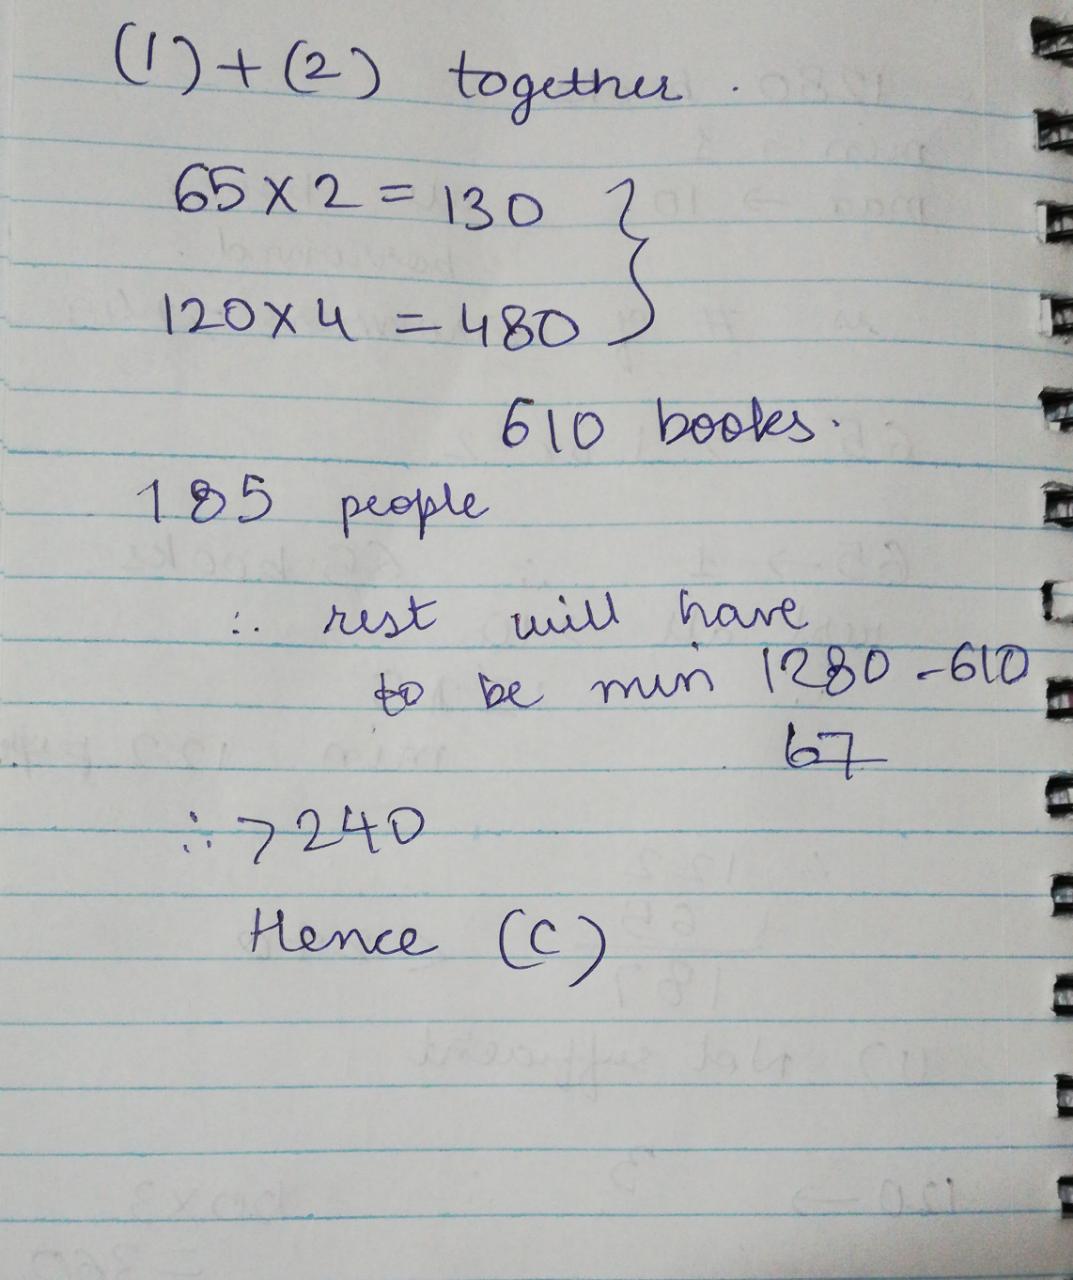 (1) + (2) together.
65 x 2 = 130
120 x 4 = 480
610 books.
185 people
∴ rest will have
to be min 1280 - 610
67
∴ > 240
Hence (C)